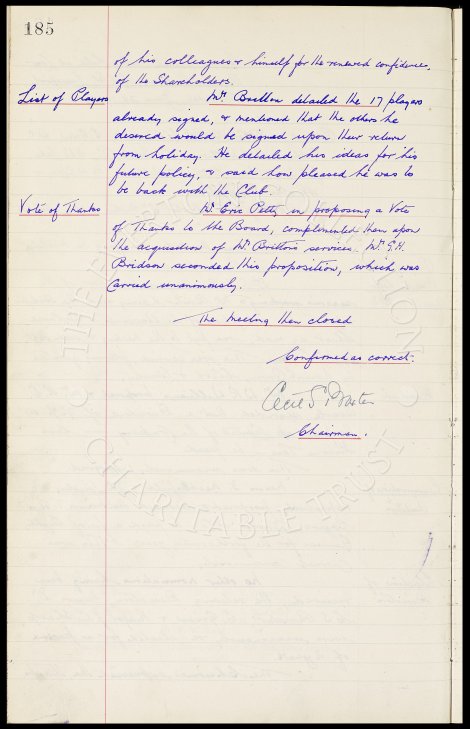 185
of his colleagues & himself for the renewed confidence,
of the Shareholders.
List of Players Mr. Britton detailed the 17 players
already signed, & mentioned that the others he
desired would be signed upon their return
from holiday. He detailed his ideas for his
future policy, & said how pleased he was to
be back with the Club.
Vote of Thanks Mr Eric Petty in proposing a Vote
of Thanks to the Board, complimented them upon
the acquisition of Mr. Britton's services. Mr. G.H.
Bridson seconded this proposition, which was
carried unanimously.
The meeting then closed
Confirmed as correct:
Cecil S. Baxter
Chairman.
THE EVERTON COLLECTION
CHARITABLE TRUST